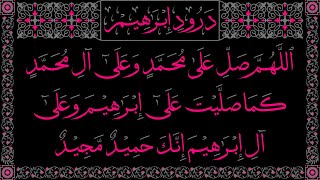 درود ابرهيم
اَللّٰهُمَّ صَلِّ عَلٰى مُحَمَّدٍ وَعَلٰٓى اٰلِ مُحَمَّدٍ
كَمَا صَلَّيْتَ عَلٰٓى اِبْرٰهِيْمَ وَعَلٰٓى
اٰلِ اِبْرٰهِيْمَ اِنَّكَ حَمِيْدٌ مَّجِيْدٌ